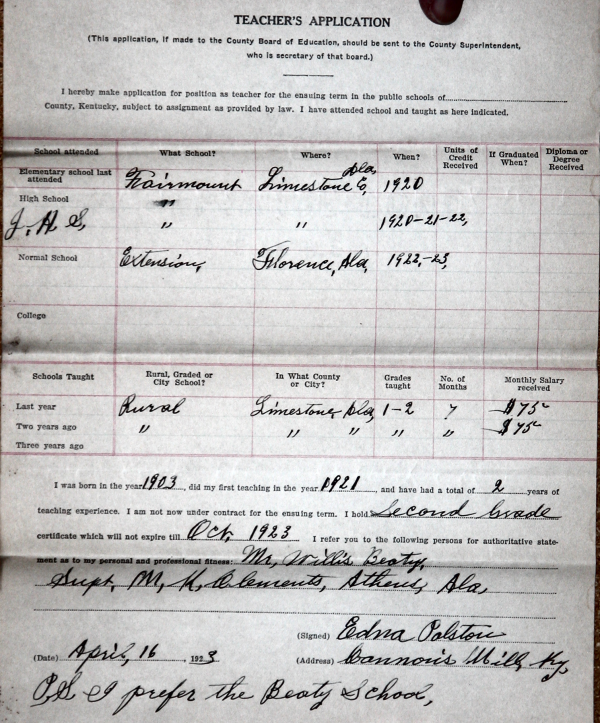 TEACHER'S APPLICATION
(This application, if made to the County Board of Education, should be sent to the County Superintendent,
who is secretary of that board.)
I hereby make application for position as teacher for the ensuing term in the public schools of
County, Kentucky, subject to assignment as provided by law. I have attended school and taught as here indicated.
School attended What School? Where? When? Units of Credit Received If Graduated When? Diploma or Degree Received
Elementary school last attended Fairmount Limestone Co, Ala 1920
High School "
J. H. S, " " 1920-21-22,
Normal School Extension, Florence, Ala, 1922,-23,
College
Schools Taught Rural, Graded or City School? In What County or City? Grades taught No. of Months Monthly Salary received
Last year Rural Limestone, Ala, 1-2 7 $75
Two years ago " " " " " $75
Three years ago
I was born in the year 1903, did my first teaching in the year 1921, and have had a total of 2 years of
teaching experience. I am not now under contract for the ensuing term. I hold Second Grade
certificate which will not expire till Oct, 1923 I refer you to the following persons for authoritative state-
ment as to my personal and professional fitness: Mr, Willis Beaty,
Supt. M, K, Clements, Athens, Ala,
(Signed) Edna Polston
(Date) April, 16, 1923 (Address) Cannon's Mill, Ky,
P.S I prefer the Beaty School,